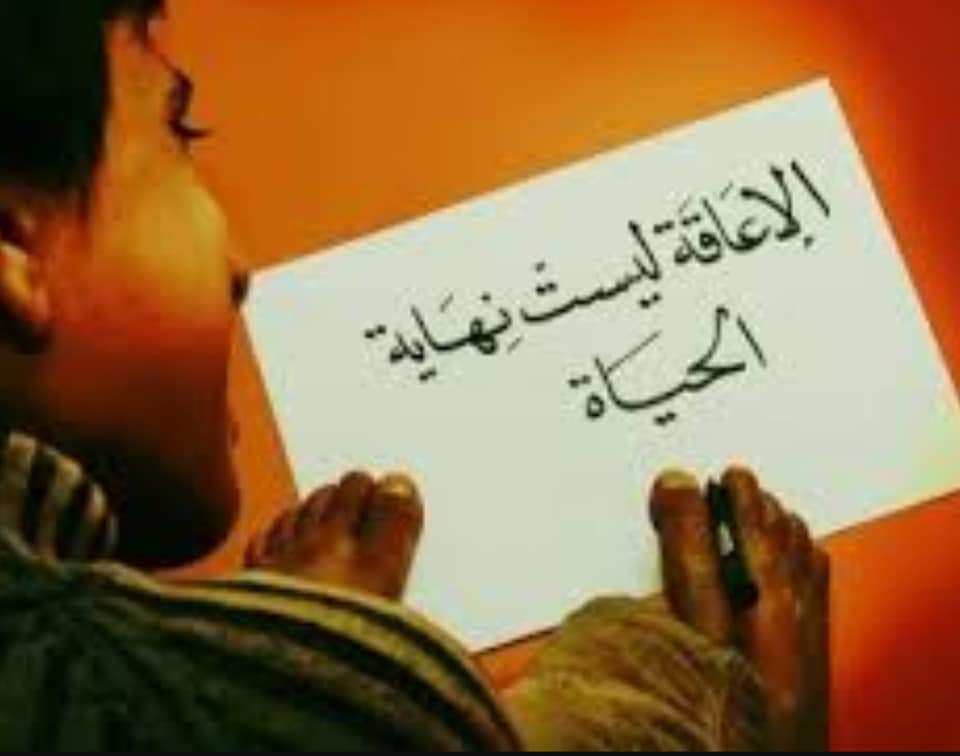 الِاعَاقَة ليست نِهَاية
الحيَاة